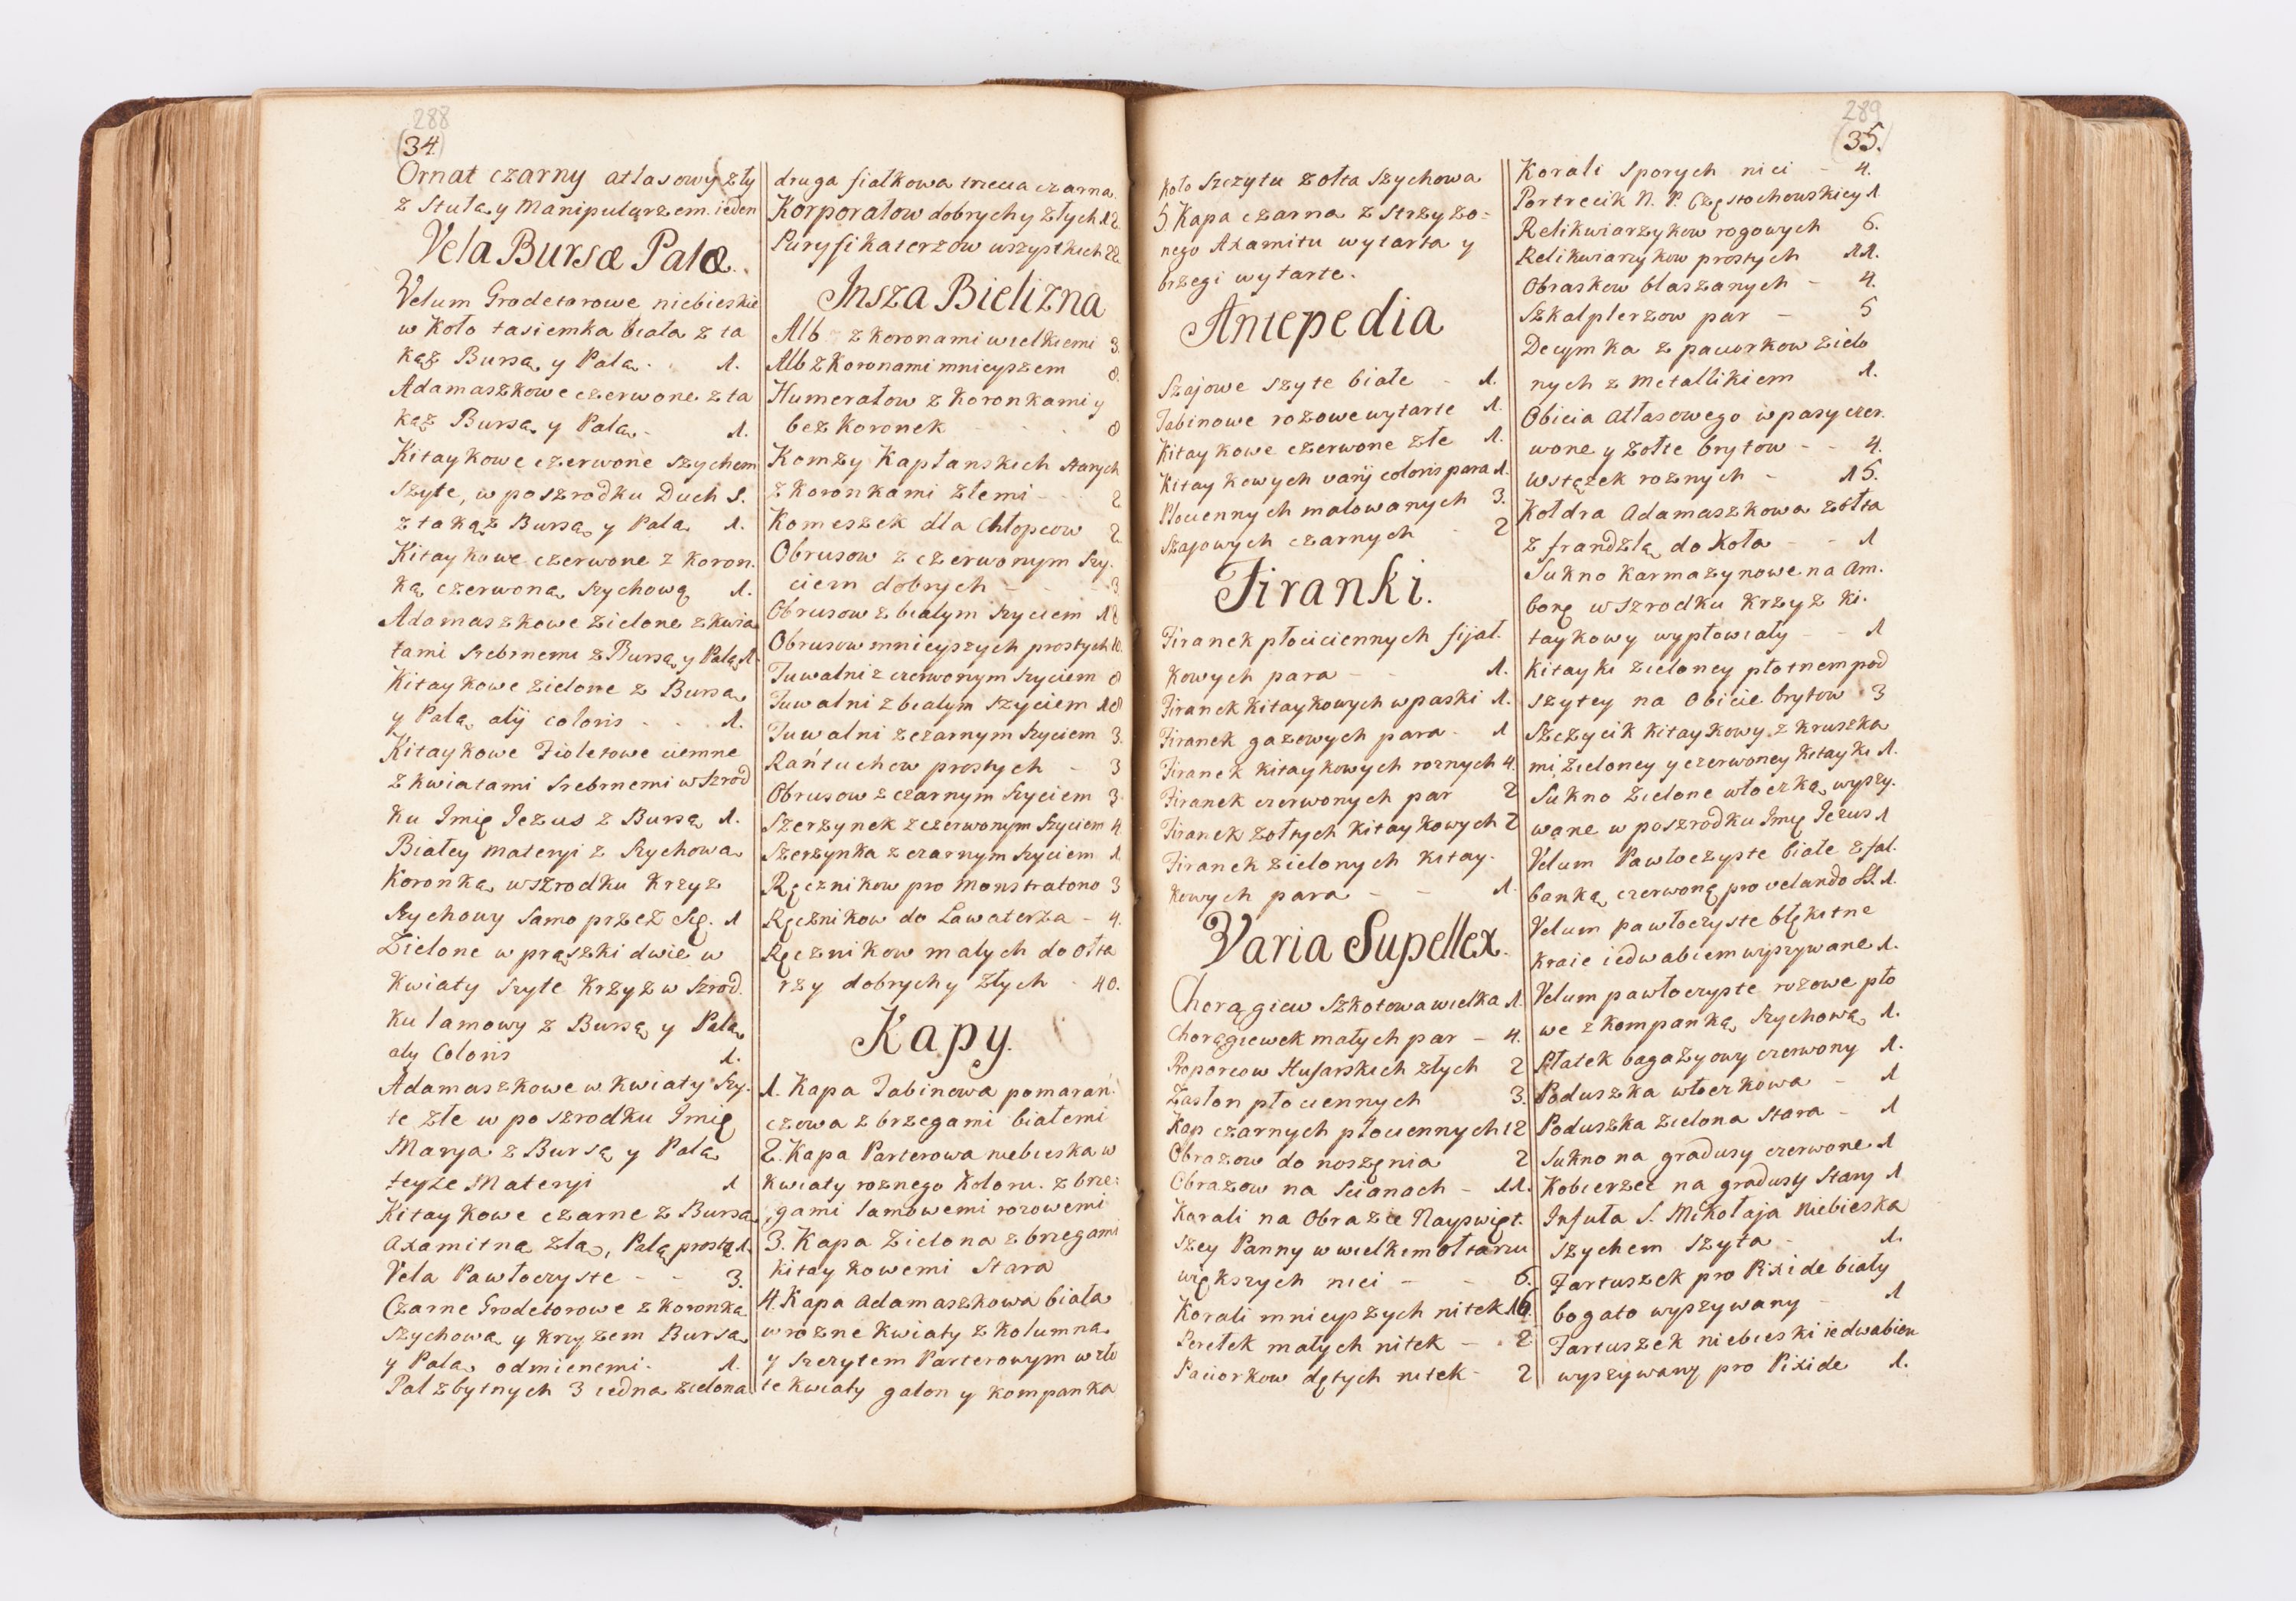 288
(34.)
Ornat czarny atlasowy zły
z Stułą y Manipularzem. ieden
Vela Bursæ Palæ.
Velum Grodetorowe niebieskie
w Koło tasiemka biała z ta
kąż Bursą y Palą. 1.
Adamaszkowe czerwone z ta
kąż Bursą y Palą - 1.
Kitaykowe czerwone szychem
szyte, w poszrodku Duch S.
z takąż Bursą y Palą 1.
Kitaykowe czerwone z koron.
ką czerwoną szychową 1.
Adamaszkowe zielone z kwia
tami srebrnemi z Bursą y Palą 1.
Kitaykowe zielone z Bursą
y Palą alij coloris - - 1.
Kitaykowe Fioletowe ciemne
z kwiatami srebrnemi w szrod
ku Imię Jezus z Bursą 1.
Białey materyi z Szychową
Koronką w szrodku krzyz
szychowy samo przez się. 1
Zielone w prąszki dwie w
kwiaty szyte krzyz w szrod.
ku lamowy z Bursą y Palą
aly Coloris 1.
Adamaszkowe w kwiaty szy.
te złe w poszrodku Imię
Marya z Bursą y Palą
teyze Materyi 1
Kitaykowe czarne z Bursą
axamitną złą, Palą prostą 1.
Vela Pawłoczyste - - 3.
Czarne Grodetorowe z koronką
szychową y krzyzem Bursą
y Palą odmienemi. 1.
Pal zbytnych 3 iedna zielona
druga fiałkowa trzecia czarna.
Korporałow dobrych y złych 12.
Puryfikaterzow wszystkich 22.
Insza Bielizna
Alb z koronami wielkiemi 3.
Alb z Koronami mnieyszem 8.
Humerałow z koronkami y
bez koronek - - - 8
Komzy Kapłanskich starych
z koronkami złemi - - 2
Komeszek dla Chłopcow 2.
Obrusow z czerwonym szy.
ciem dobrych - - 3
Obrusow z białym szyciem 18
Obrusow mnieyszych prostych 10.
Tuwalni z czerwonym szyciem 8
Tuwalni z białym szyciem 18
Tuwalni z czarnym szyciem 3.
Rańtuchow prostych - 3
Obrusow z czarnym szyciem 3.
Szerzynek z czerwonym szyciem 4.
Szerzynka z czarnym szyciem 1.
Ręcznikow pro Monstratono 3
Ręcznikow do Lawaterza - 4.
Ręcznikow małych do Ołta
rzy dobrych y złych - 40.
Kapy.
1. Kapa Tabinowa pomarań
czowa z brzegami białemi
2. Kapa Parterowa niebieska w
kwiaty roznego Koloru. z brze:
gami lamowemi rozowemi
3. Kapa Zielona z brzegami
kitaykowemi Stara
4. Kapa Adamaszkowa biała
w rozne kwiaty z kolumną
y szczytem Parterowym w zło
te kwiaty galon y kompanka
289
(35.)
koło szczytu zołta szychowa
5. Kapa czarna z strzyzo=
nego Axamitu wytarta y
brzegi wytarte.
Antepedia
Szajowe szyte białe - 1.
Tabinowe rozowe wytarte 1.
Kitaykowe czerwone złe 1.
Kitaykowych varij coloris para 1.
Płociennych malowanych 3.
Szajowych czarnych - 2
Firanki.
Firanek płociciennych fijał.
kowych para - - 1.
Firanek Kitaykowych w paski 1.
Firanek gazowych para - 1
Firanek Kitaykowych roznych 4.
Firanek czerwonych par 2
Firanek zołtych Kitaykowych 2
Firanek zielonych kitay.
kowych para - - 1.
Varia Supellex.
Chorągiew szkotowa wielka 1.
Chorągiewek małych par - 4.
Proporcow Husarskich złych 2
Zasłon płociennych 3.
Kap czarnych płociennych 12
Obrazow do noszęnia 2
Obrazow na Scianach - 11.
Korali na Obrazie Nayswięt.
szey Panny w wielkim ołtarzu
większych nici - - 6.
Korali mnieyszych nitek 16.
Perełek małych nitek - 2
Paciorkow dętych nitek - 2
Korali sporych nici - 4.
Portrecik N. P. Częstochowskiey 1
Relikwiarzykow rogowych 6.
Relikwiarzykow prostych 11.
Obraskow blaszanych - 4.
Szkalplerzow par - 5
Decymka z paciorkow zielo
nych z Metallikiem 1.
Obicia Atłasowego w pasy czer.
wone y zołte brytow - - 4.
Wstązek roznych - 15.
Kołdra Adamaszkowa zołta
z frandzlą do Koła - - 1
Sukno karmazynowe na Am.
bonę w szrodku krzyz ki.
taykowy wypłowiały - - 1
Kitayki zieloney płotnem pod
szytey na Obicie brytow 3
Szczycik kitaykowy z kruszka
mi, zieloney y czerwoney kitayki 1.
Sukno zielone włoczką wyszy.
wane w poszrodku Imię Jezus 1
Velum Pawłoczyste białe z fal.
banką czerwoną pro velando SS. 1.
Velum pawłoczyste błękitne
kraie iedwabiem wyszywane 1.
Velum pawłoczyste rozowe pło
we z kompanką Szychową 1.
Płatek bagazyowy czerwony 1.
Poduszka włoczkowa - 1
Poduszka zielona stara - 1
Sukno na gradusy czerwone 1
Kobierzec na gradusy Stary 1
Infuła S. Mikołaja Niebieska
szychem szyta - 1.
Fartuszek pro Pixide biały
bogato wyszywany - 1
Fartuszek niebieski iedwabiem
wyszywany pro Pixide 1.